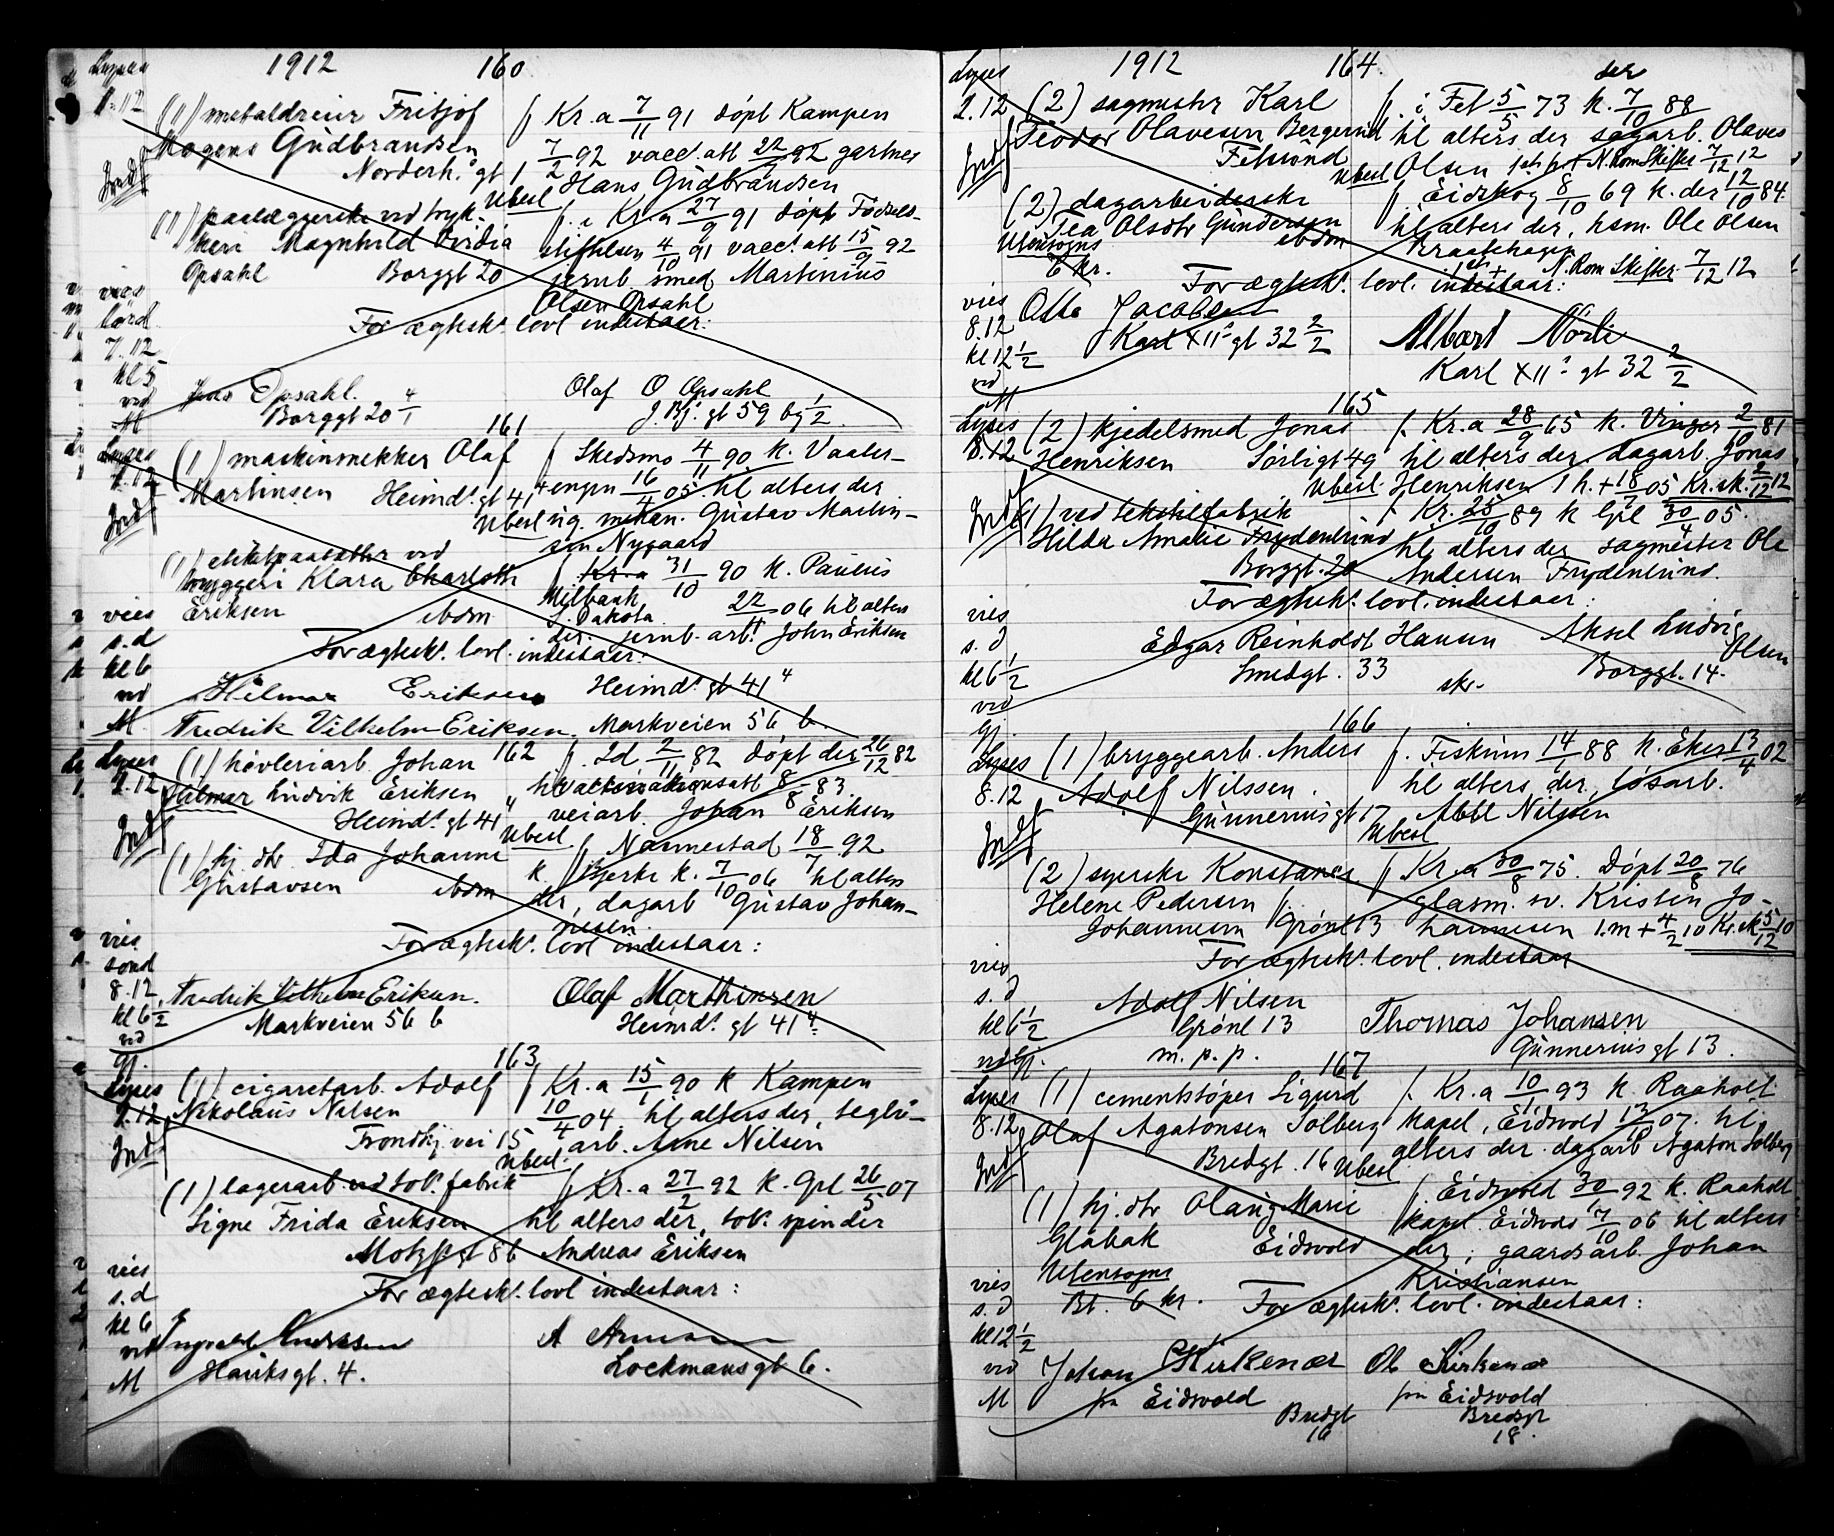 1912 160
Lyses
1.12 (1) metaldreier Fritjof f Kr.a 7/11 91 døpt Kampen
Mogens Gudbrandsen 7/2 92 vacc. att 22/9 92 gartner
Norderh.s gt 1 Hans Gudbrandsen
Indf Ubesl
(1) paalæggerske ved tryk- f. i Kr.a 27/9 91 døpt Fødsels-
keri Magnhild Ovidia stiftelsen 4/10 91 vacc. att 15/9 92
Opsahl Borggt 20 jernb. smed Martinius
vies Olsen Opsahl
lørd. For ægtesk. lovl indestaar:
7.12
kl 5
vd Opsahl. Olaf O Opsahl
M Borggt 20 4/1 J. Bj. gt 59 bg 1/2
161
Lyses (1) maskinsnekker Olaf f Skedsmo 4/11 90 k. Vaaler-
Martinsen Heimd. gt 41 4 engen 16/4 05 hl alters der
Indf Ubesl sig. mekan. Gustav Martin-
sen Nygaard
(1) etiketpaasætter ved f. Kr.a 31/10 90 k. Paulus
bryggeri Klara Charlotte Milbank
vies Eriksen ibdm S. Dakota 22/11 06 hl alters
s.d der. jernb. arb. John Eriksen
kl 6 For ægtesk. lovl. indestaar:
vd Hilmar Eriksen Heimd. gt 41 4
M Fredrik Vilhelm Eriksen. Markveien 56 b
162
Lyses (1) høvleriarb. Johan f. Id 2/11 82 døpt der 26/12 82
1.12 Hilmar Ludvik Eriksen vaccinationsatt 8/8 83.
Heimd. gt 41 4 veiarb. Johan Eriksen
Indf Ubesl
(1) hj. dtr. Ida Johanne f Nannestad 18/7 92
Gustavsen ibdm k. Bjerke k. 7/10 06 hl alters
der, dagarb Gustav Johan-
nesen.
vies For ægtesk. lovl indestaar:
sønd
8.12 Fredrik Vilhelm Eriksen. Olaf Marthinsen
kl 6 1/2 Markveien 56 b Heimd. gt 41 4
vd
Gj.
163
Lyses (1) cigaretarb. Adolf f Kr.a 15/1 90 k Kampen
1.12 Nikolaus Nilsen 10/4 04 hl alters der, teglv-
Indf Trondhj. vei 15 arb. Arne Nilsen
Ubesl.
(1) lagerarb. vd tob. fabrik f Kr.a 27/2 92 k. Grl 26/5 07
Signe Frida Eriksen hl alters der, tob. spinder
Motzf gt 8b Andreas Eriksen
vies For ægtesk. lovl indestaar:
s.d
kl 6
vd A
M Hauksgt. 4. Lockmansgt 6.
1912 164.
Lyses der
2.12 (2) sagmester Karl f. i Fet 5/5 73 k. 7/10 88
Teodor Olavesen Bergerud hl alters der sagarb. Olaves
Indf Fetsund Ubesl Olsen 1 et. h + N. Rom Skifter 7/12 12
(2) dagarbeiderske f. Eidskog 8/10 69 k. der 12/10 84.
Tea Olsdtr Gundersen hl alters der, hsm. Ole Olsen
Utensogns ibdm Kraatehagen
6 kr. et + N. Rom Skifter 7/12 12
For ægtesk. lovl. indestaar:
vies Otto Jacobsen
8.12 Karl XII's gt 32 2/2 Albert Nørli
kl 12 1/2 Karl XII's gt 32 2/2
vd
M
165
Lyses (2) kjedelsmed Jonas f. Kr.a 28/9 65 k. Vinger 2/10 81
8.12 Henriksen Sørligt 49 hl alters der dagarb. Jonas
Indf Ubesl. Henriksen 1 h. + 18/7 05 Kr. sk. 2/12 12
(1) ved tekstilfabrik f Kr. 25/10 89 k Grl 30/4 05.
Hilda Amalie Frydenlund hl alters der sagmester Ole
Borggt. 20 Andersen Frydenlund.
For ægtesk. lovl. indestaar:
vies
s.d Edgar Reinholdt Hansen Aksel Ludvig
kl 6 1/2 Smedgt. 33 Olsen
vd skr. Borggt. 14.
Gj.
166
Lyses (1) bryggearb. Anders f. Fiskum 14/1 88 k. Eker 13/4 02
8.12 Adolf Nilssen. hl alters der, løsarb.
Gunneriusgt 17 Abel Nilssen
Indf Ubesl
(2) syerske Konstance f Kr.a 30/8 75. Døpt 20/8 76
Helene Pedersen f. glasm. sv. Kristen Jo-
Johannesen Grønl 13 hannesen 1.m + 4/2 10 Kr. sk 5/12 10
vies For ægtesk. lovl. indestaar
s.d
kl 6 1/2 Adolf Nilsen Thomas Johansen
Grønl 13 Gunneriusgt 13.
vd Gj. m. p. p.
167
Lyses (1) cementstøper Sigurd f. Kr.a 10/1 93 k. Raaholt
8.12 Olaf Agatonsen Solberg kapel, Eidsvold 13/10 07. hl.
Indf Bredgt. 16 Ubesl alters der. dagarb Agaton Solberg
(1) hj. dtr Olaug Marie f. Eidsvold 30/1 92 k. Raaholt
Glabak Eidsvold kapel Eidsvold 7/10 06 hl alters
der; gaardsarb. Johan
Utensogns Kristiansen
vies Bt. 6 kr. For ægtesk. lovl. indestaar:
s.d
kl 12 1/2
vd Johan Kirkenær Ol Kirkenær
M fra Eidsvold fra Eidsvold
Bredgt Bredgt
16 18.